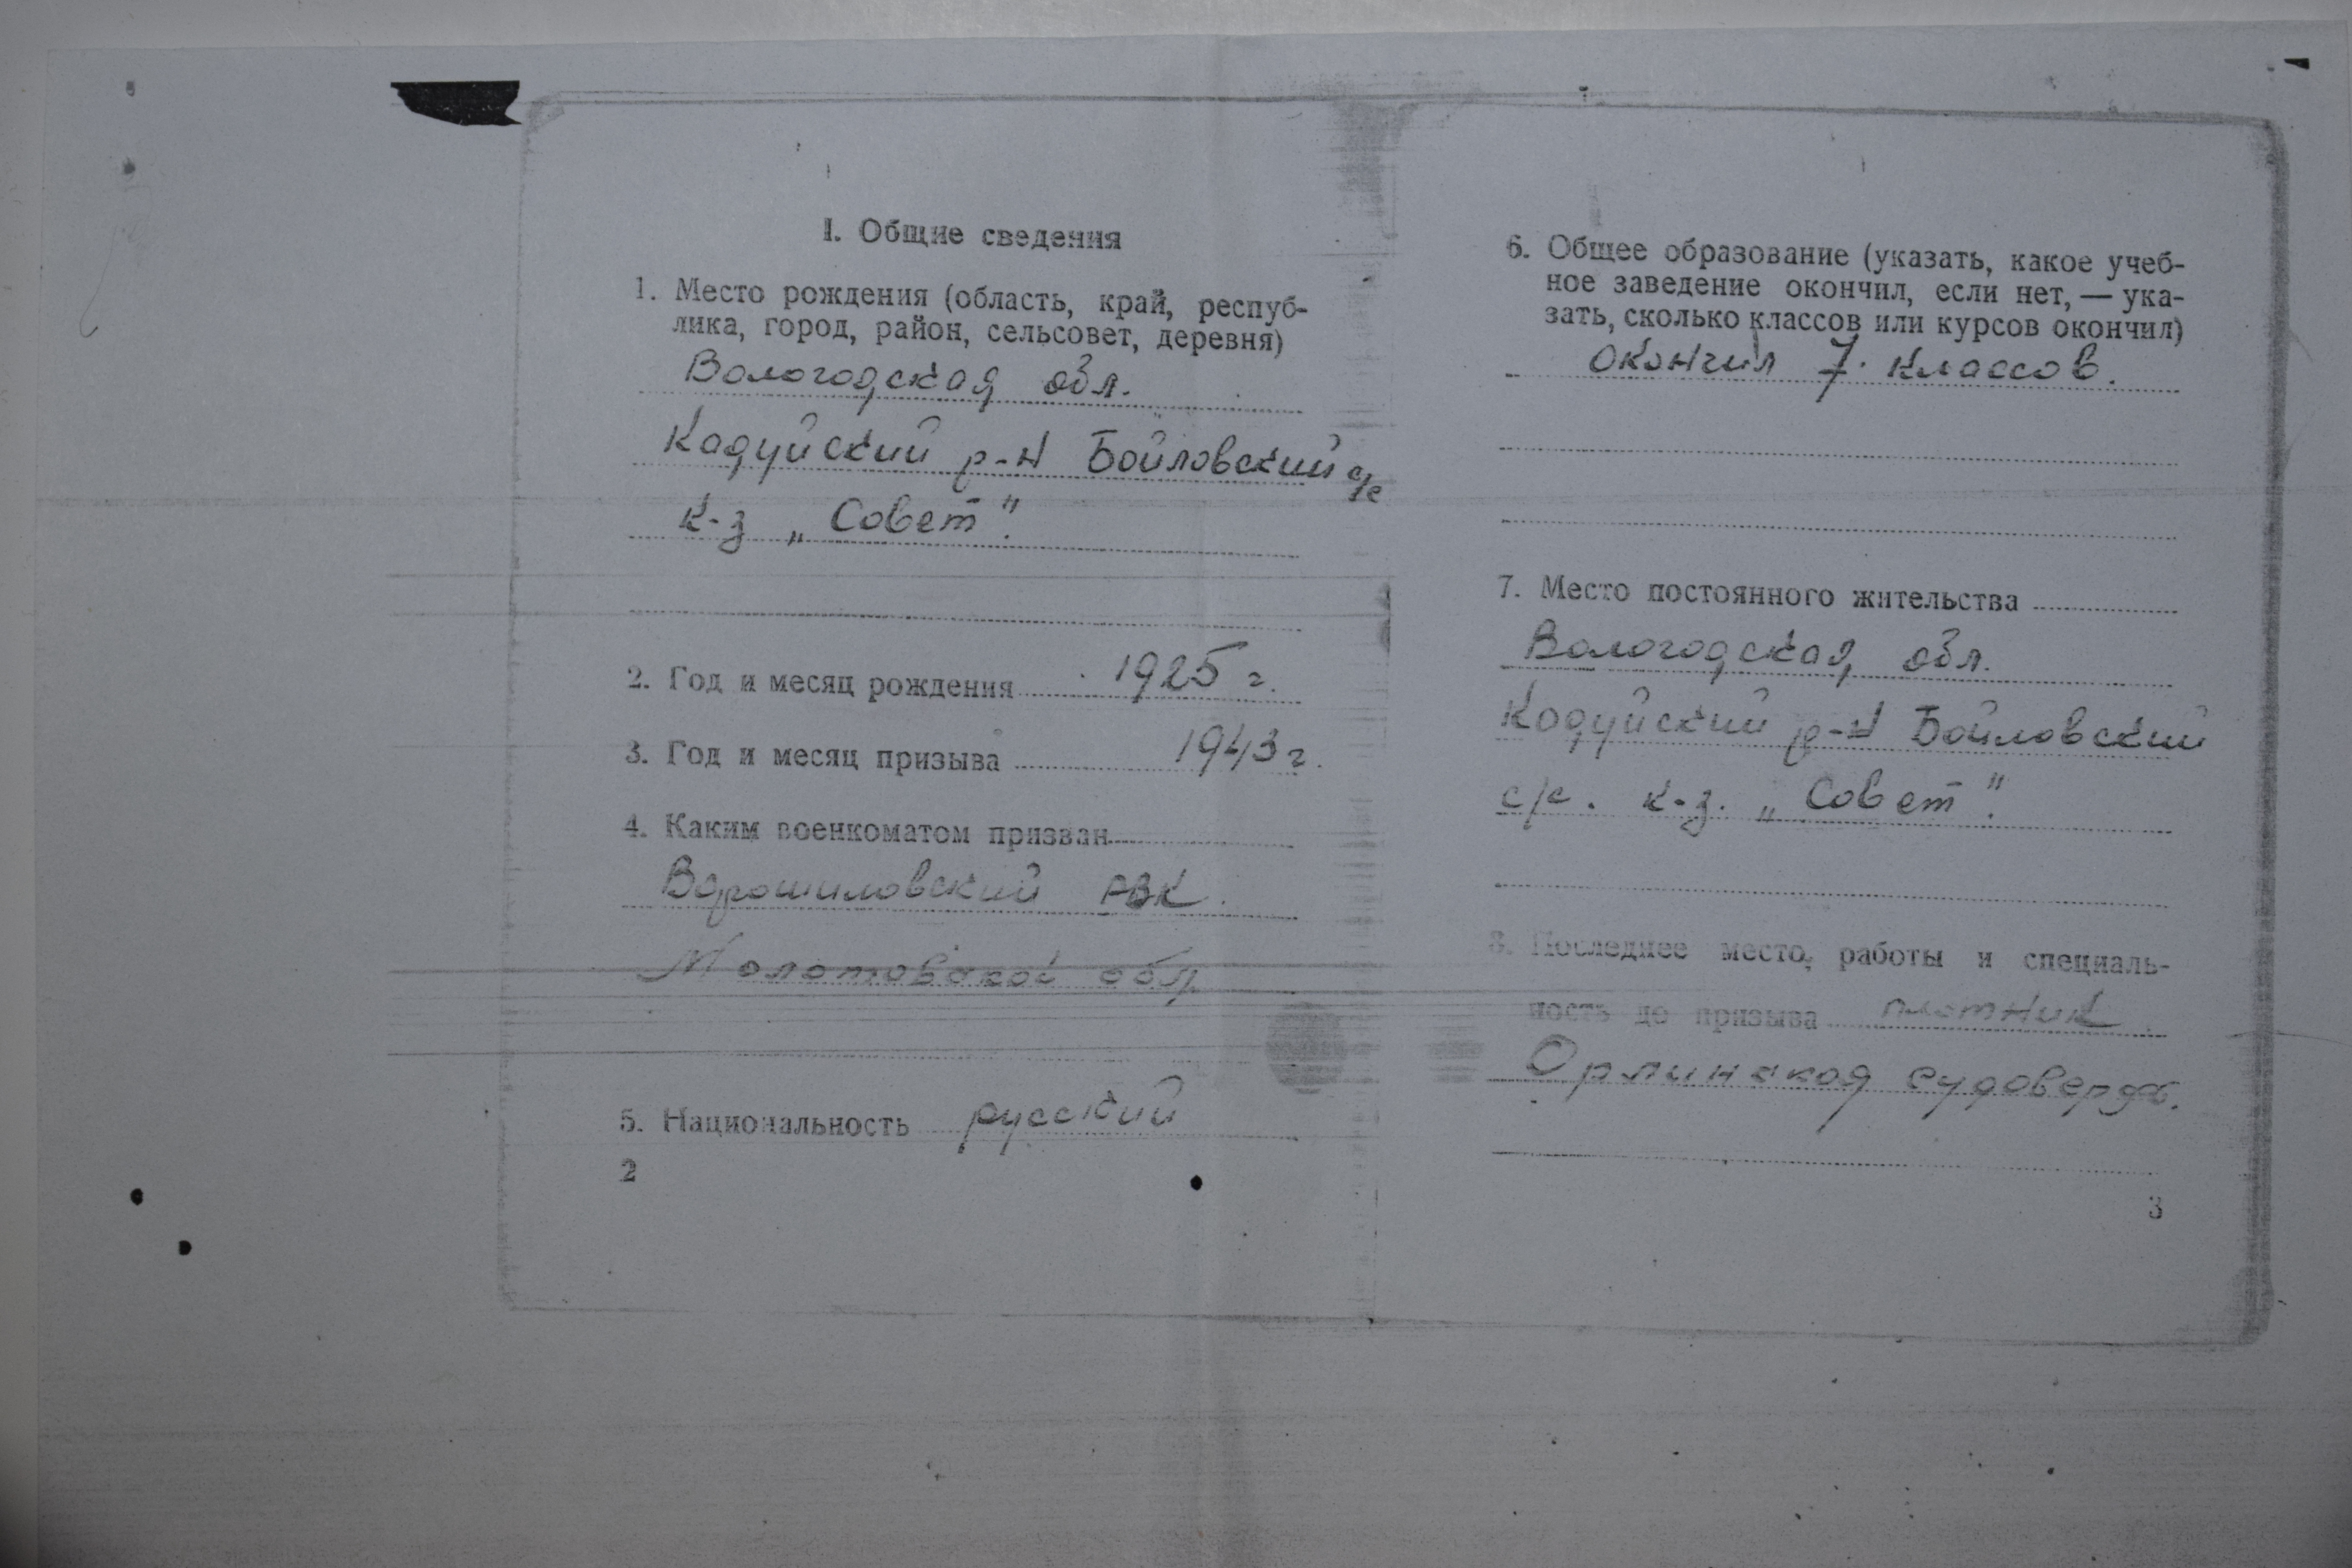 I. Общие сведения
1. Место рождения (область, край, респуб-
лика, город, район, сельсовет, деревня)
Вологодская обл.
Кадуйский р-н Бойловский с/с
к-з „Совет".
2. Год и месяц рождения 1925 г.
3. Год и месяц призыва 1943 г.
4. Каким военкоматом призван
Ворошиловский РВК.
Молотовской обл.
5. Национальность русский
2
6. Общее образование (указать, какое учеб-
ное заведение окончил, если нет, — ука-
зать, сколько классов или курсов окончил)
окончил 7 классов.
7. Место постоянного жительства
Вологодская обл.
Кадуйский р-н Бойловский
с/с. к-з. „Совет".
8. Последнее место работы и специаль-
ность до призыва плотник
Орлинская судоверфь.
3